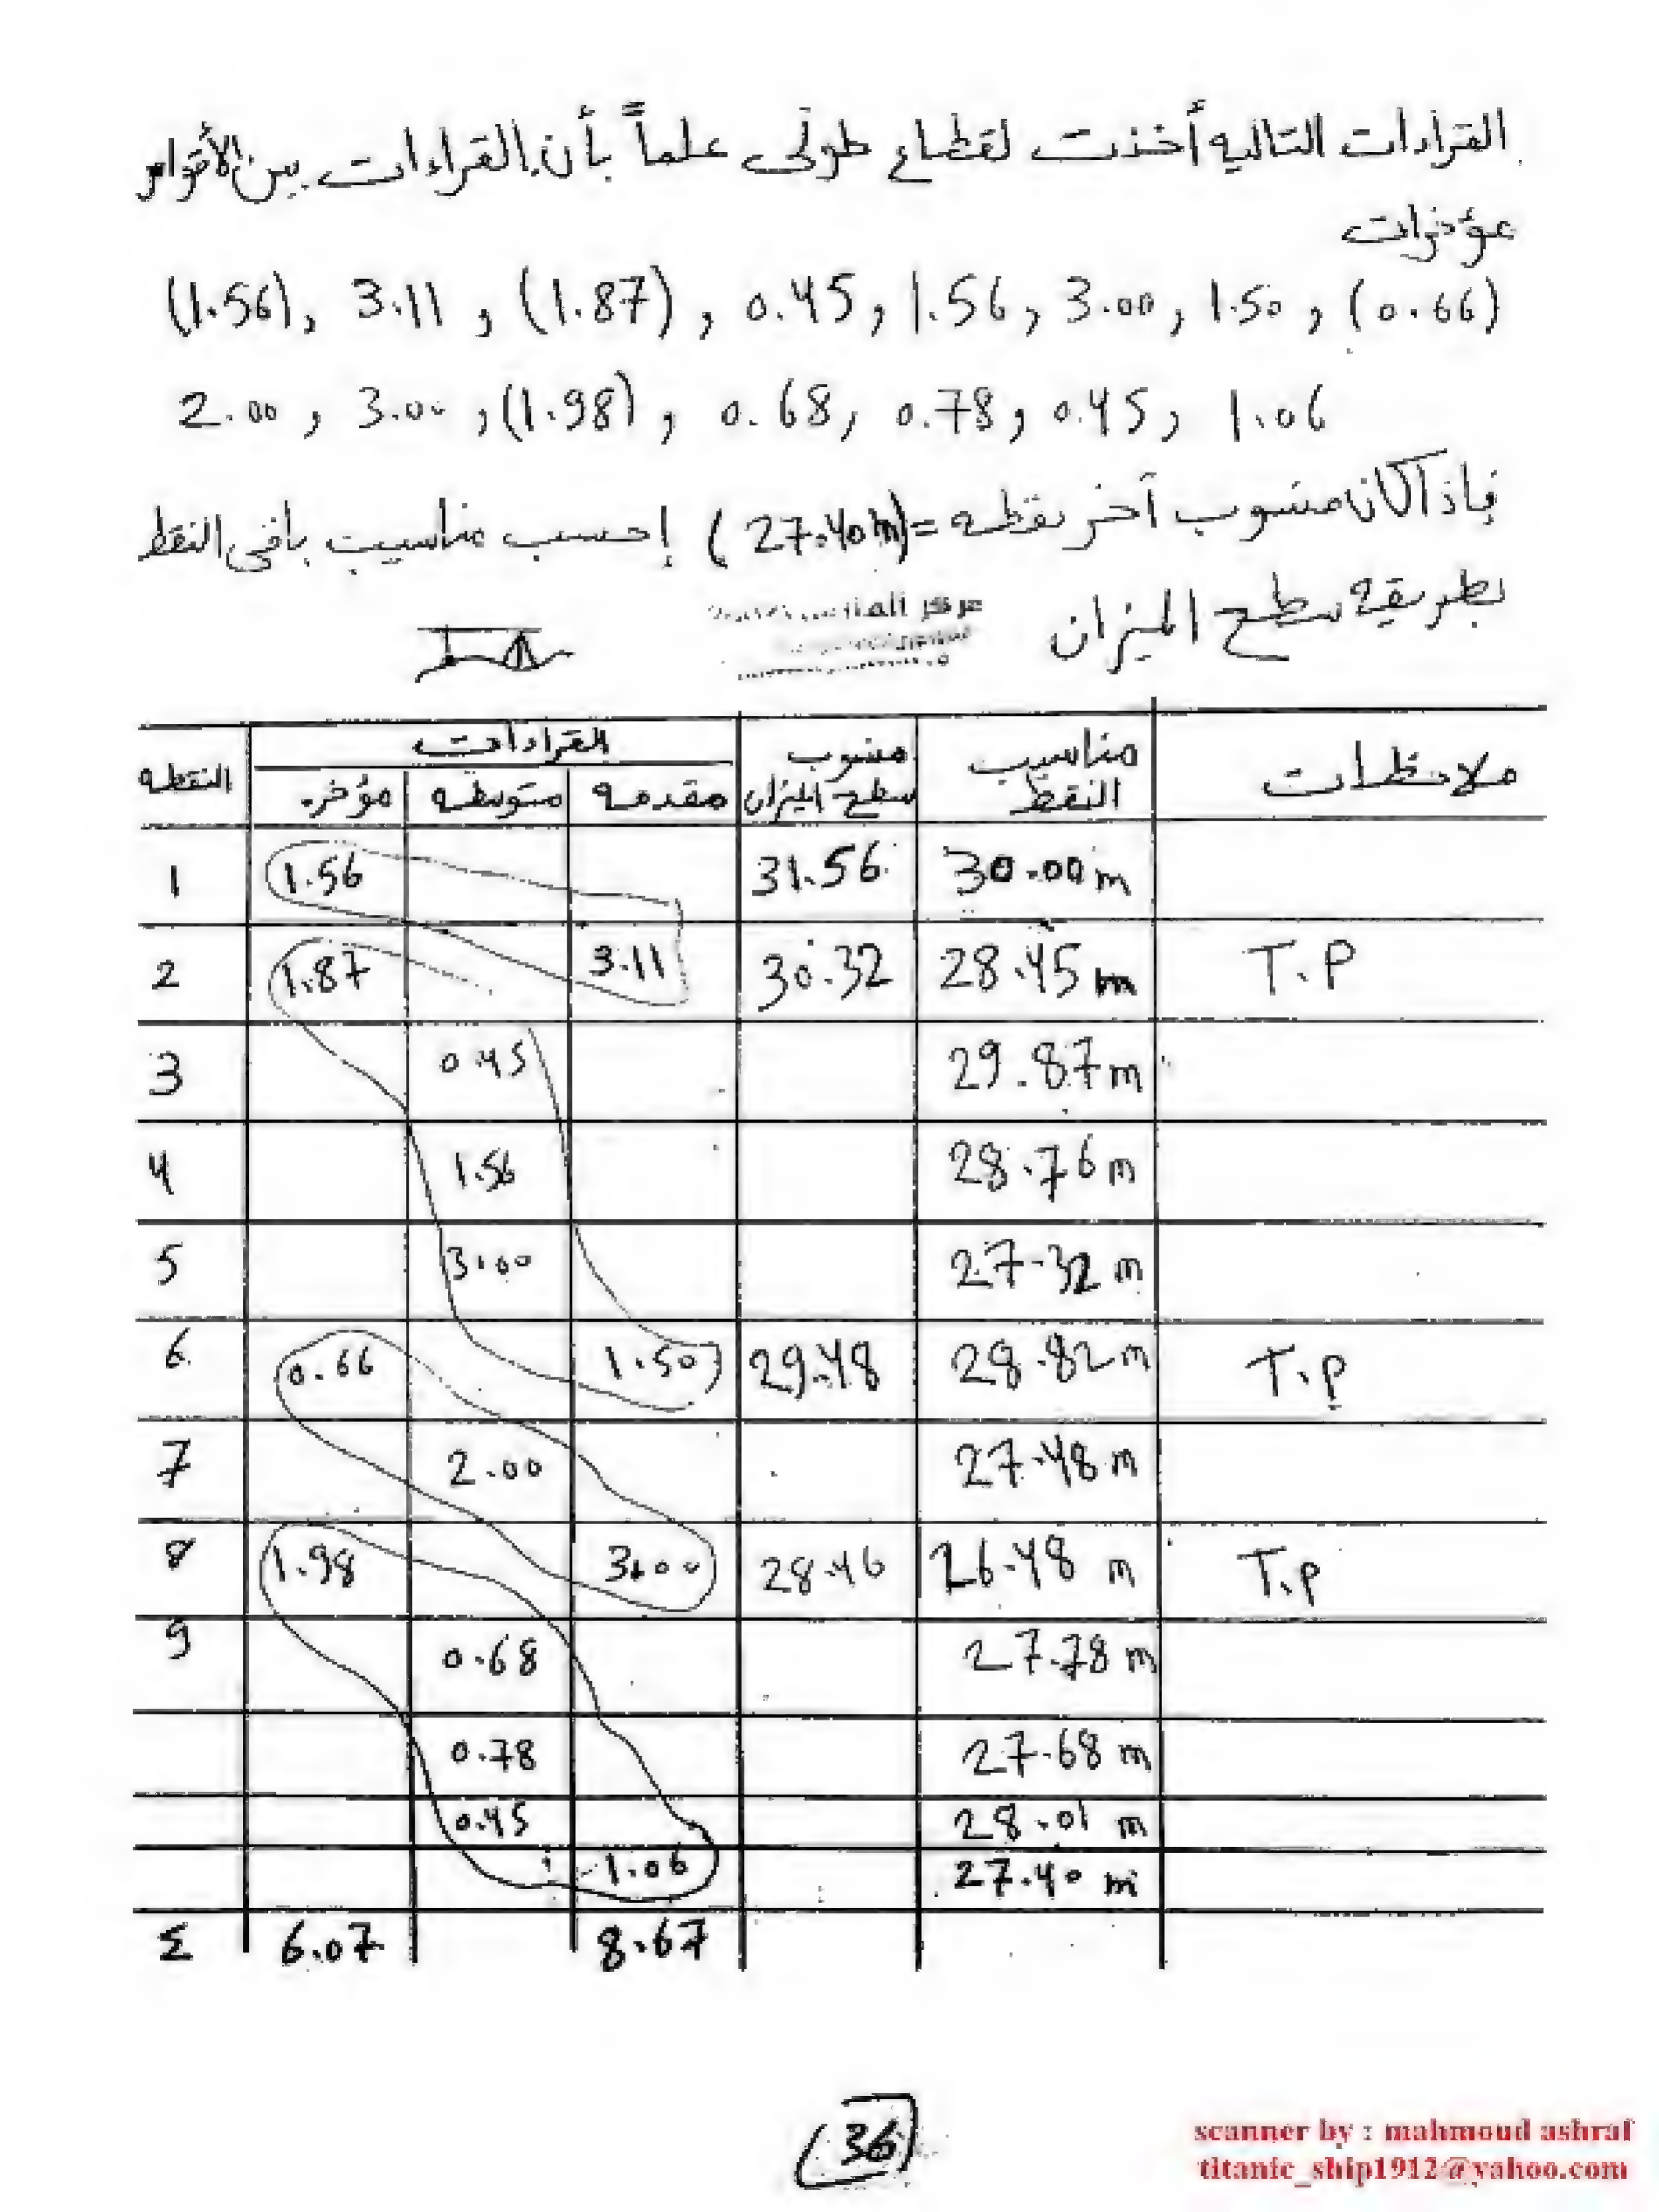 القراءات التاليه أخذت لقطاع طولى علماً بأن القراءات بين الأقواس
مؤخرات
(1.56), 3.11, (1.87), 0.45, 1.56, 3.00, 1.50, (0.66)
2.00, 3.00, (1.98), 0.68, 0.78, 0.45, 1.06
فإذا كان منسوب آخر نقطه = (27.40m) إحسب مناسيب باقى النقط
بطريقه سطح الميزان
النقطه القراءات منسوب سطح الميزان مناسيب النقط ملاحظات
مؤخره متوسطه مقدمه
1 1.56 31.56 30.00m
2 1.87 3.11 30.32 28.45m T.P
3 0.45 29.87m
4 1.56 28.76m
5 3.00 27.32m
6 0.66 1.50 29.48 28.82m T.P
7 2.00 27.48m
8 1.98 3.00 28.46 26.48m T.P
9 0.68 27.78m
0.78 27.68m
0.45 28.01m
1.06 27.40m
Σ 6.07 8.67
36
scanner by : mahmoud ashraf
titanic_ship1912@yahoo.com